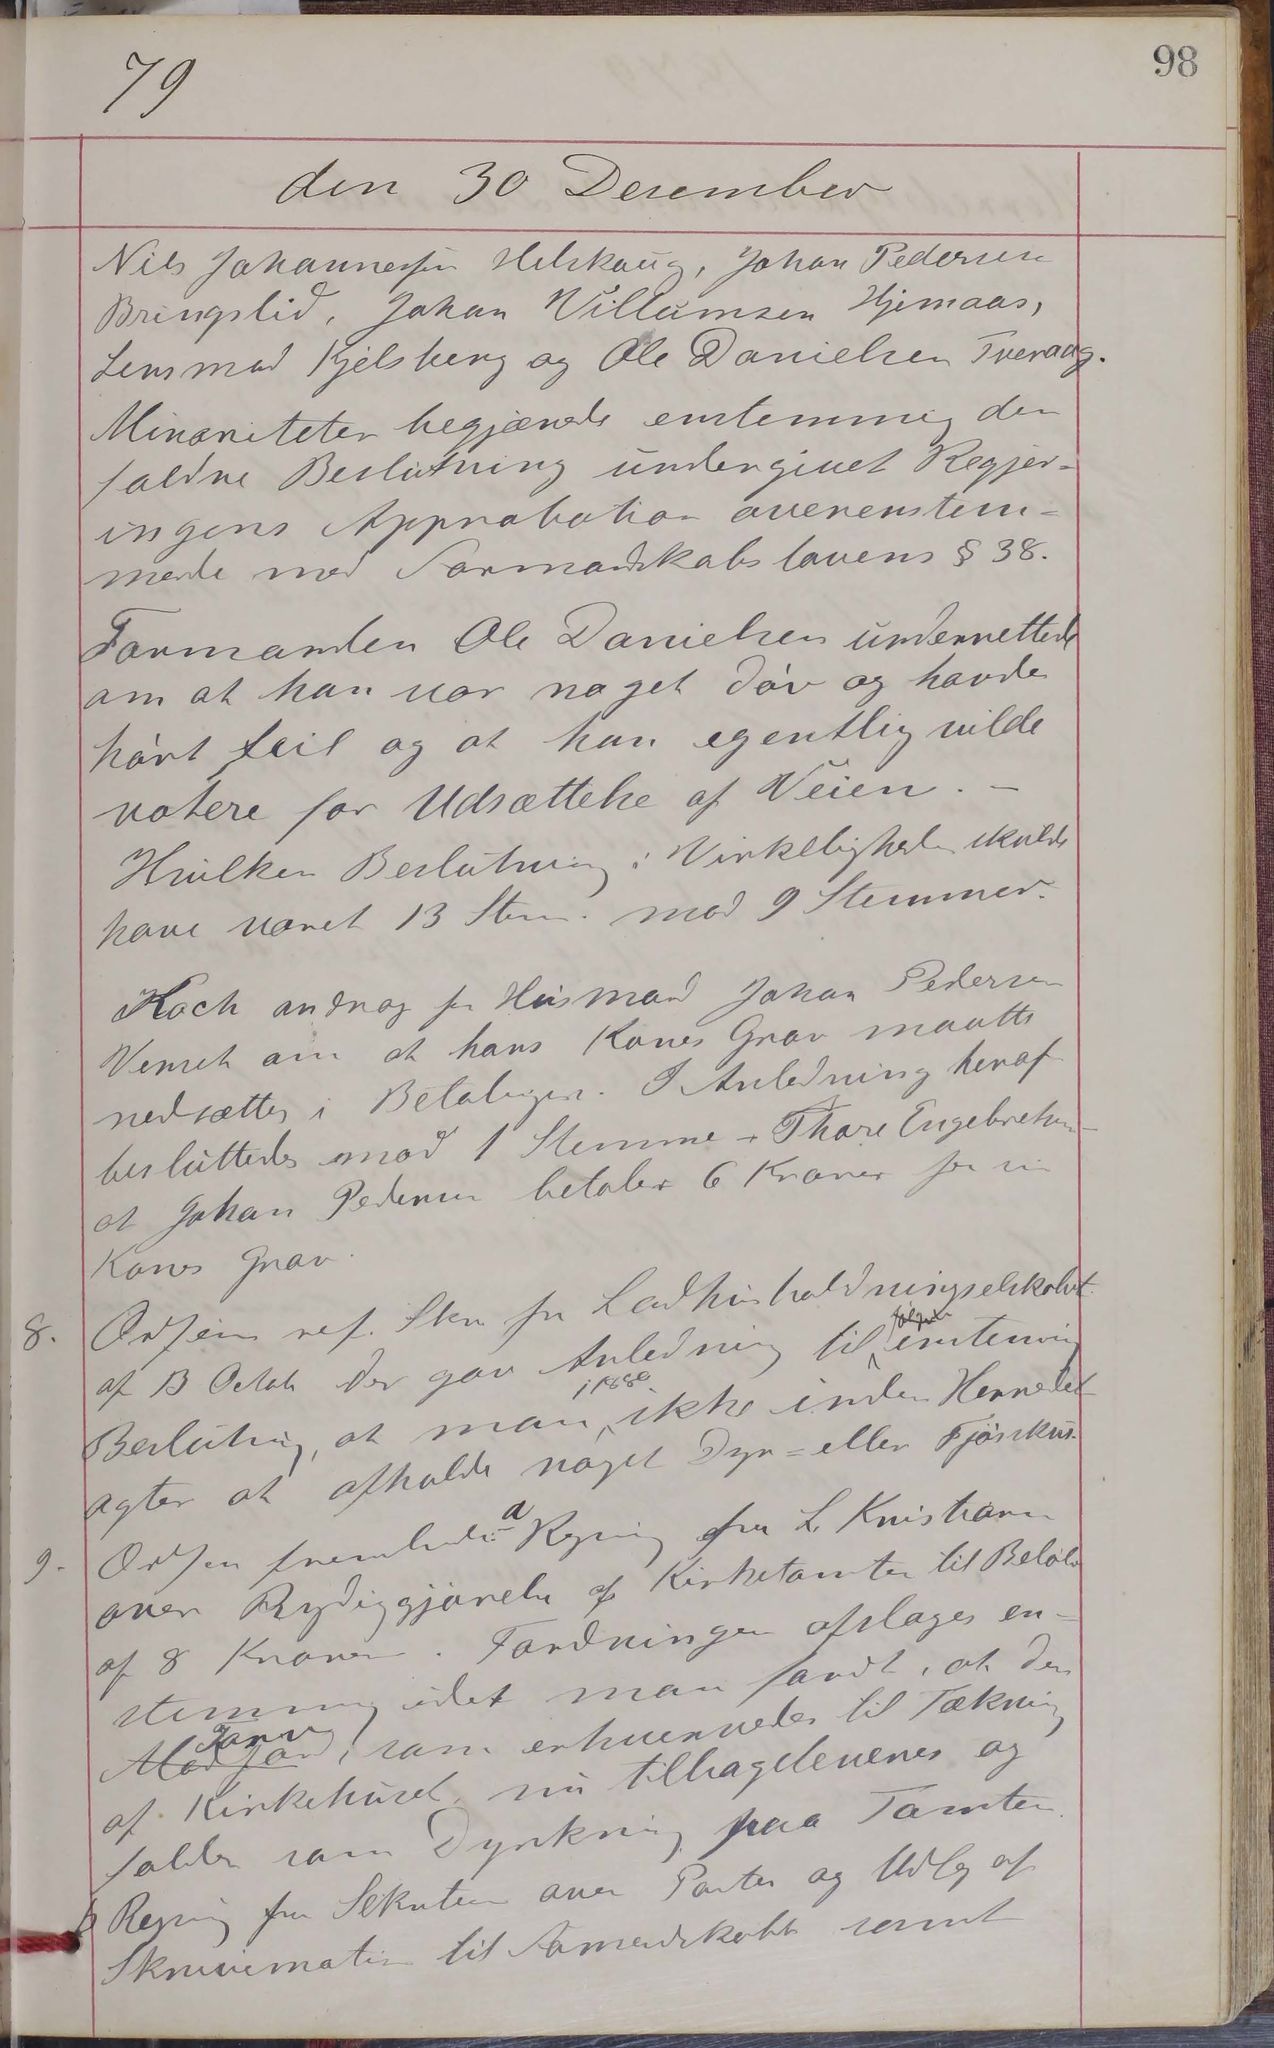 98
79
den 30 Desember
Nils Johannessen Helskaug, Johan Pedersen
Bringslid, Johan Villumsen Hjemaas,
Lensmad Kjelsberg og Ole Danielsen Tveraag.
Minoriteten begjærede enstemmig den
faldne Beslutning undergivet Regjer-
ingens Approbation overenstem-
mende med Formandskabslovens § 38.
Formanden Ole Danielsen underrettede
om at han var noget döv og havde
hört feil og at han egentlig vilde
votere for Udsættelse af Veien. -
Hvilken Beslutning i Virkeligheden skulde
have været 13 Stem. mod 9 Stemmer.
Koch androg for Husmand Johan Pedersen
Vemet om at hans Kones Grav maatte
nedsættes i Betalingen. I Anledning heraf
besluttedes mod 1 Stemme - Thore Engebretsen -
at Johan Pedersen betaler 6 Kroner for sin
Kones Grav.
8. Ordføren ref. Skr fra Ladhusholdningselskabet
af 13 Octob der gav Anledning til følgende enstemmig
Beslutning, at man i 1888 ikke inden Herredet
agter at afholde noget Dyr= eller Fjösskue.
9. Ordføren fremlagde: a Regning fra L. Kristiansen
over Rydiggjörelse af Kirketomten til Beløb
af 8 Kroner. Fordringen afslages en-
stemmig idet man fandt, at den
Jorv, som erhvervedes til Tækning
af Kirkehuset, nu tilbageleveres og
falder som Dyrkning paa Tomten.
b Regning fra Sekretæren over Porto og Udlæg af
Skrivematr. til Formandskabet samt